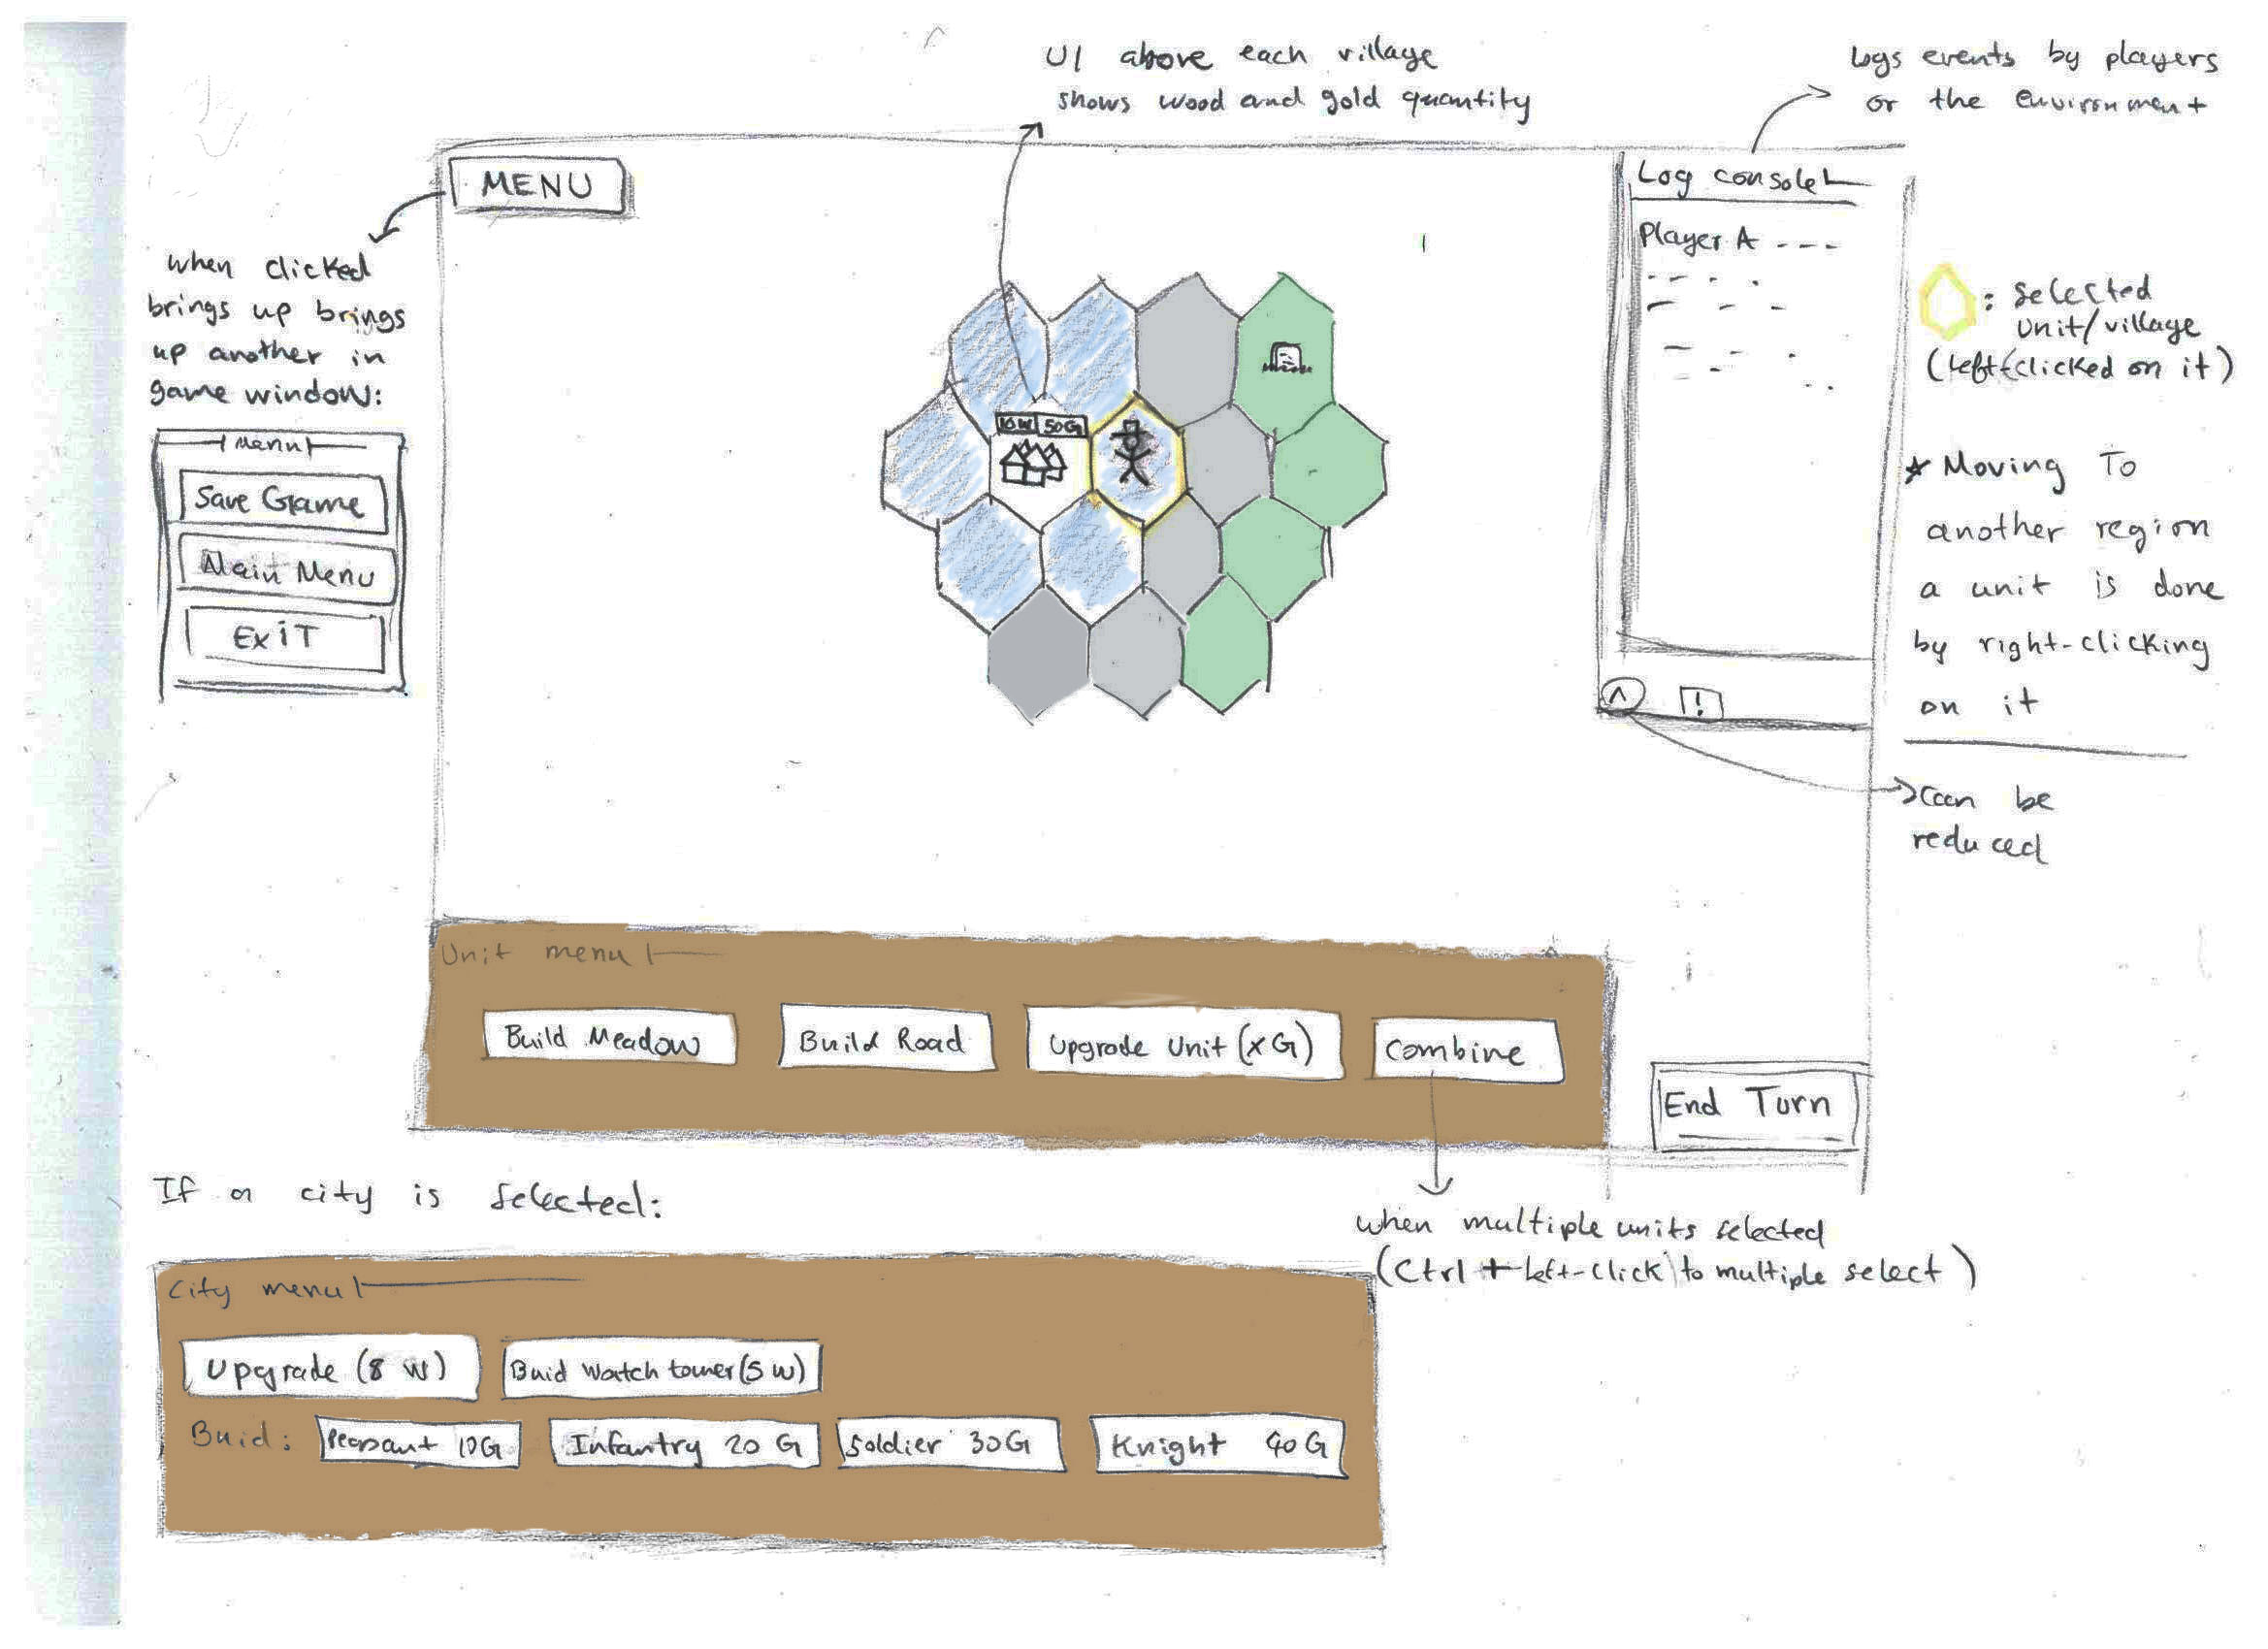 UI above each village
shows wood and gold quantity
Logs events by players
or the environment
MENU
when clicked
brings up brings
up another in
game window:
Menu
Save Game
Main Menu
Exit
Log console
Player A ---
10W 50G
: Selected
Unit/village
(left-clicked on it)
* Moving To
another region
a unit is done
by right-clicking
on it
^ !
Can be
reduced
Unit menu
Build Meadow
Build Road
Upgrade Unit (x G)
Combine
End Turn
when multiple units selected
(Ctrl + left-click to multiple select)
If a city is selected:
City menu
Upgrade (8 W)
Buid Watch tower (5 W)
Buid:
Peasant 10G
Infantry 20 G
Soldier 30G
Knight 40 G